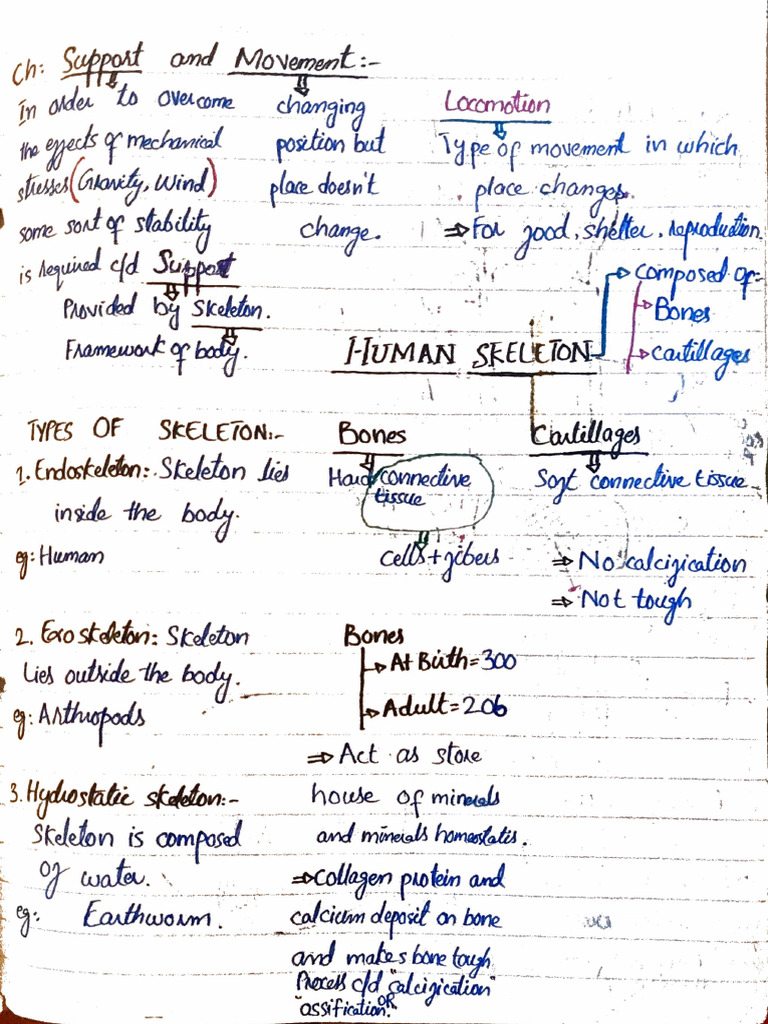 Ch: Support and Movement:-
In order to overcome
the effects of mechanical
stresses (Gravity, Wind)
some sort of stability
is required c/d Support
Provided by Skeleton.
Framework of body.
changing
position but
place doesn't
change.
Locomotion
Type of movement in which
place changes.
⇒ For food, shelter, reproduction.
HUMAN SKELETON
composed of:-
Bones
Cartillages
TYPES OF SKELETON:-
1. Endoskeleton: Skeleton lies
inside the body.
eg: Human
2. Exoskeleton: Skeleton
Lies outside the body.
eg: Arthropods
3. Hydrostatic skeleton:-
Skeleton is composed
Of water.
eg: Earthworm.
Bones
Hard connective
tissue
cells + fibers
Cartillages
Soft connective tissue
⇒ No calcification
⇒ Not tough
Bones
At Birth = 300
Adult = 206
⇒ Act as store
house of minerals
and minerals homeostatis.
⇒ collagen protein and
calcium deposit on bone
and makes bone tough
Process c/d "calcification"
OR
"assification."